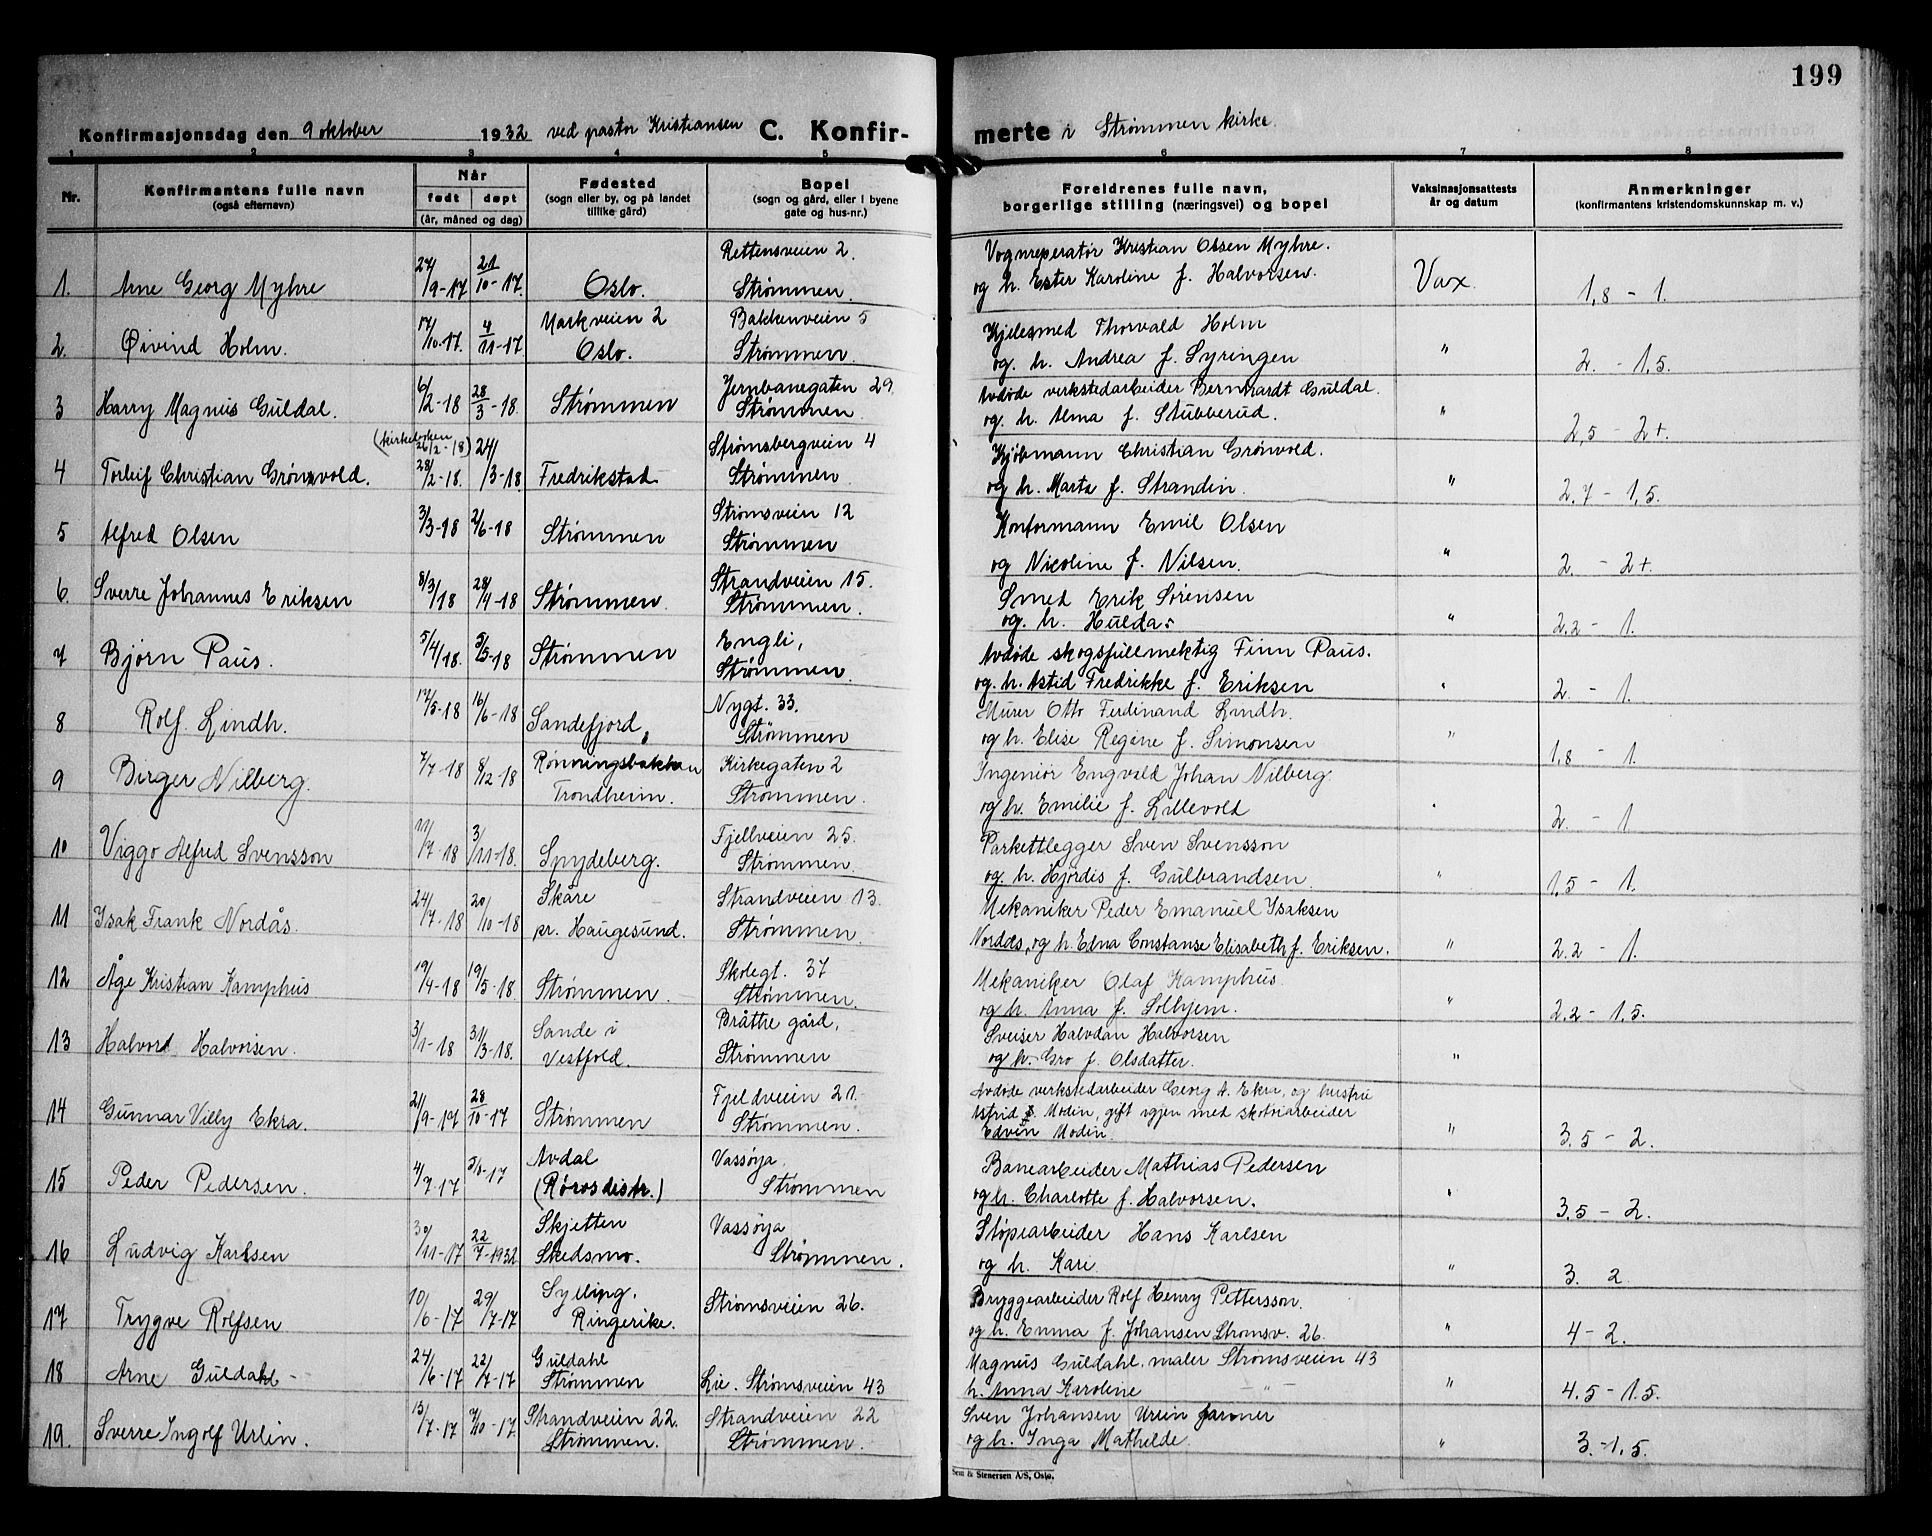 199
Konfirmasjonsdag den 9 oktober 1932 ved pastor Kristiansen C. Konfir-
merte i Strømmen kirke.
1 2 3 4 5 6 7 8
Nr. Konfirmantens fulle navn (også efternavn)
Når født døpt (år, måned og dag)
Fødested (sogn eller by, og på landet tillike gård)
Bopel (sogn og gård, eller i byene gate og hus-nr.)
Foreldrenes fulle navn, borgerlige stilling (næringsvei) og bopel
Vaksinasjonsattests år og datum
Anmerkninger (konfirmantens kristendomskunnskap m. v.)
1. Arne Georg Myhre 24/9-17 21/10-17. Oslo. Rettensveien 2. Strømmen.
Vognreperatør Kristian Olsen Myhre.
og h. Ester Karoline f. Halvorsen. Vax. 1,8 - 1.
2. Øivind Holm. 17/10-17. 4/11-17 Markveien 2 Oslo. Bakkenveien 5 Strømmen.
Kjelesmed Thorvald Holm
og. h. Andrea f. Syringen " 2. - 1,5.
3 Harry Magnus Guldal. 6/2-18 28/3-18. Strømmen Jernbanegaten 29. Strømmen.
Avdøde verkstedarbeider Bernhardt Guldal.
og. h. Alma f. Stubberud. " 2,5 - 2+.
4 Torleif Christian Grønvold. (kirkeboken 26/2-18) 28/2-18. 24/3-18. Fredrikstad Strømsbergveien 4 Strømmen.
Kjøbmann Christian Grønvold.
og h. Marta f. Strandin. " 2,7 - 1,5.
5 Alfred Olsen 3/3-18 2/6-18 Strømmen Strømsveien 12 Strømmen
Konformann Emil Olsen
og Nicoline f. Nilsen. " 2. - 2+.
6. Sverre Johannes Eriksen 8/3/18 28/4-18 Strømmen. Strandveien 15. Strømmen.
Smed Erik Sørensen
og. h. Hulda " 2.2 - 1.
7 Bjørn Paus. 5/4/18. 5/5-18 Strømmen Engli, Strømmen.
Avdøde skogsfullmektig Finn Paus.
og. h. Astid Fredrikke f. Eriksen " 2. - 1.
8 Rolf. Lindh. 17/5-18 16/6-18 Sandefjord, Nygt. 33. Strømmen
Murer Otto Ferdinand Lindh.
og h. Elise Regine f. Simonsen " 1,8 - 1.
9 Birger Nilberg. 7/7-18 8/12-18 Rønningsbakken Trondheim. Kirkegaten 2 Strømmen.
Ingeniør Engvald Johan Nilberg
og h. Emilie f. Lillevold " 2. - 1
10 Viggo Alfred Svensson 11/7-18 3/11-18. Spydeberg. Fjellveien 25. Strømmen.
Parkettlegger Sven Svensson
og. h. Hjørdis f. Gulbrandsen " 1,5 - 1.
11 Isak Frank Nordås. 24/7-18 20/10-18 Skåre pr. Haugesund. Strandveien 13. Strømmen.
Mekaniker Peder Emanuel Isaksen
Nordås, og h. Edna Constanse Elisabeth f. Eriksen. " 2.2 - 1.
12 Åge Kristian Kamphus 19/4-18 19/5-18 Strømmen. Skolegt. 37 Strømmen.
Mekaniker Olaf Kamphus.
og h. Anna f. Solhjem. " 2.2 - 1.5.
13 Halvord Halvorsen. 3/1-18 31/3-18. Sande i Vestfold. Bråthe gård, Strømmen
Sveiser Halvdan Halvorsen
og h. Gro f. Olsdatter. "
14 Gunnar Villy Ekra. 21/9-17 28/10-17 Strømmen Fjeldveien 21. Strømmen.
Avdøde verkstedarbeider Georg A. Ekra, og hustru
Astrid Modin, gift igjen med skotøiarbeider
Edvin Modin. " 3.5 - 2.
15 Peder Pedersen. 4/9-17 -17 Avdal (Rørosdistr.) Vassøya Strømmen
Banearbeider Mathias Pedersen
og h. Charlotte f. Halvorsen. " 3,5 - 2.
16 Ludvig Karlsen 30/11-17 22/7-1932 Skjetten Skedsmo. Vassøya Strømmen.
Støpearbeider Hans Karlsen
og h. Kari. " 3. 2.
17 Trygve Rolfsen 10/6-17 29/7-17 Sylling, Ringerike. Strømsveien 26.
Bryggearbeider Rolf Henry Pettersson.
og h. Emma f. Johansen Strømsv. 26. " 4-2.
18 Arne Guldahl - 24/6-17 22/7-17 Guldahl Strømmen Lie. Strømsveien 43
Magnus Guldahl. maler Strømsveien 43
h. Anna Karoline — " — " 4.5 - 1.5.
19. Sverre Ingolf Urlin. 13/7-17 7/10-17 Strandveien 22. Strømmen. Strandveien 22 Strømmen.
Sven Johansen Urlin
og h. Inga Mathilde. " 3.-1,5.
Sem & Stenersen A/S, Oslo.